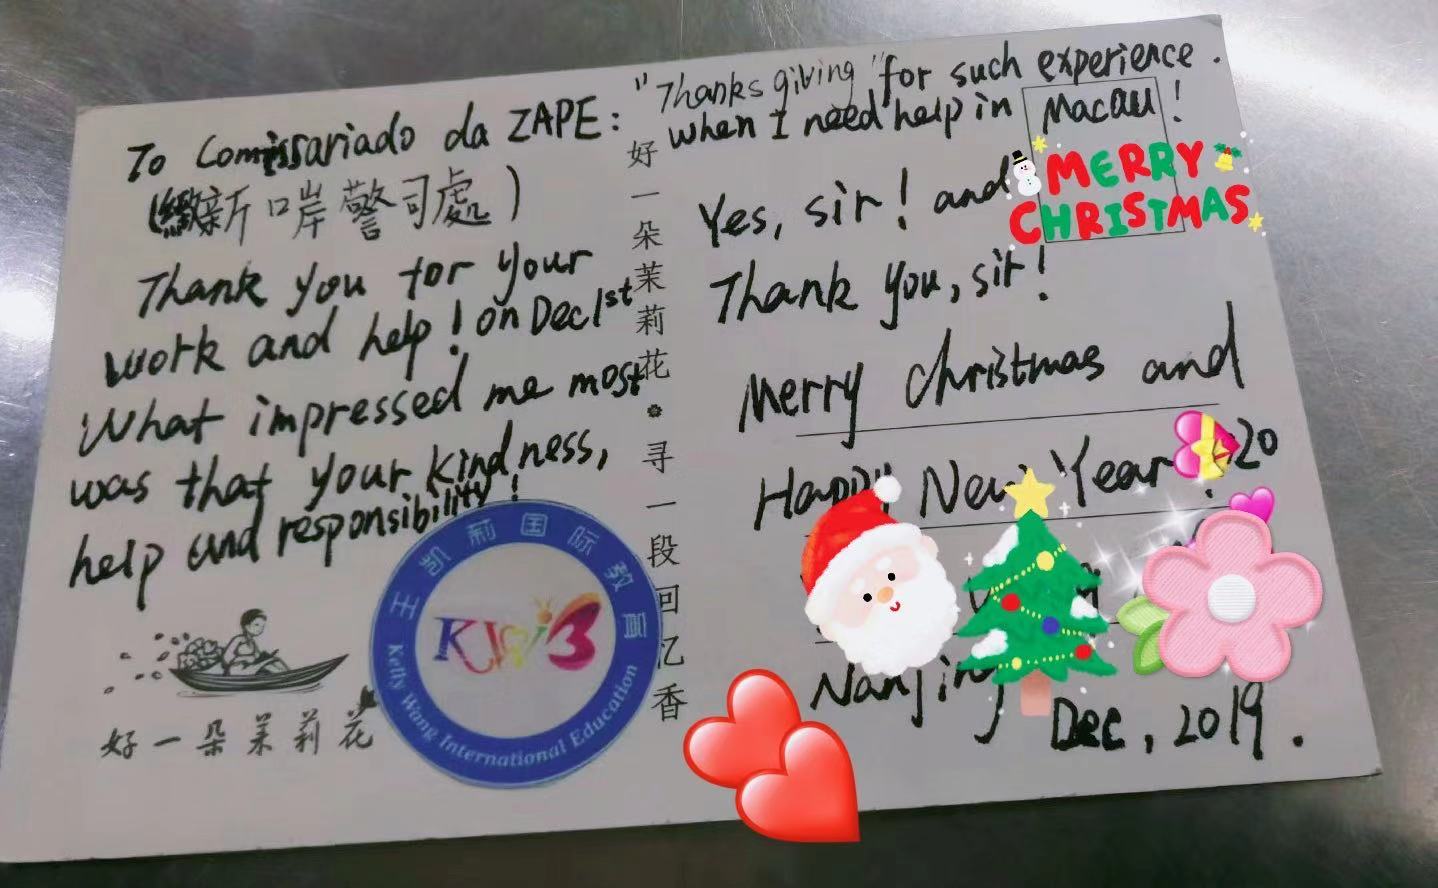 To Comissariado da ZAPE:
(新口岸警司處)
Thank you for your
work and help! on Dec 1st
What impressed me most
was that your kindness,
help and responsibility!
好一朵茉莉花
王凯莉国际教育
Kelly Wang International Education
好一朵茉莉花寻一段回忆香
"Thanks giving" for such experience.
when I need help in Macau!
Yes, sir! and
MERRY
CHRISTMAS
Thank you, sir!
Merry christmas and
Happy New Year! 20
Nanjing
Dec, 2019.